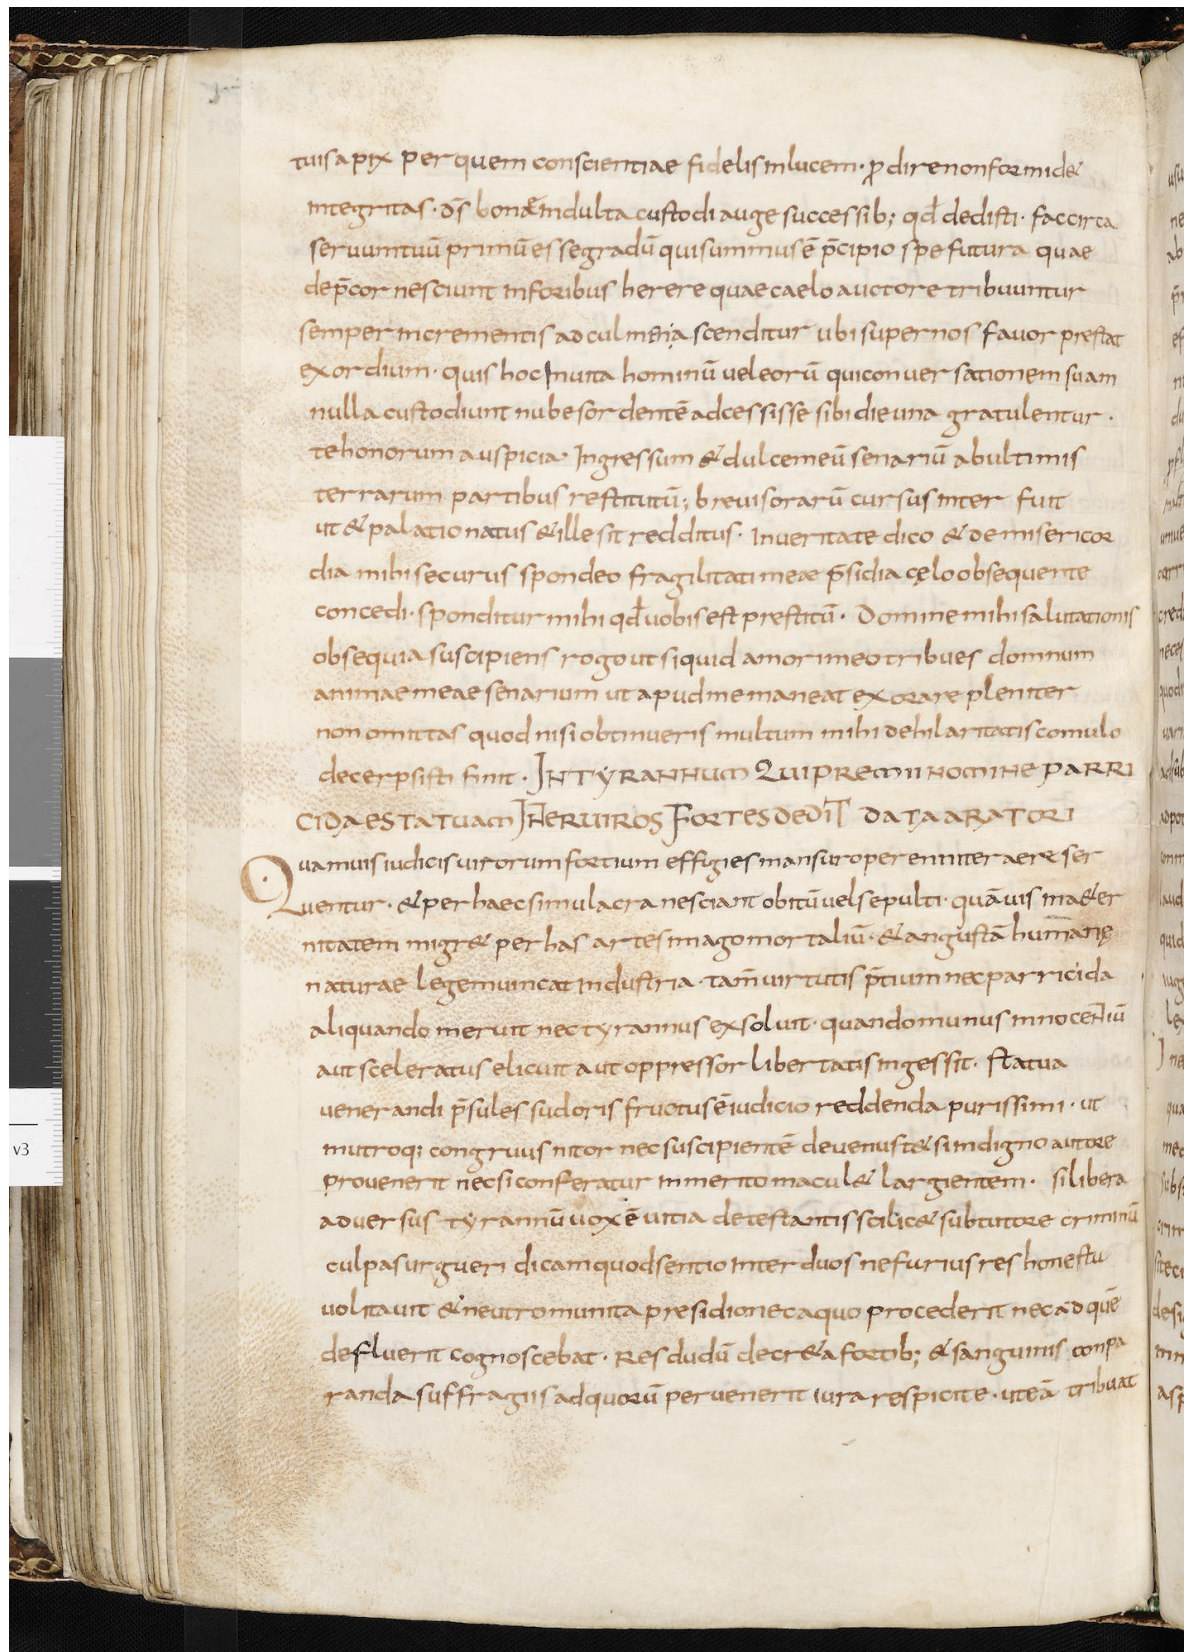 tuis apix per quem conscientiae fidelis in lucem · p̱dire non formid&
integritas · d̄s bonae indulta custodi auge successib; qđ dedisti · fac circa
seruum tuū primū esse gradū qui summus ē p̄cipio spe futura quae
dep̄cor nesciunt in foribus herere quae caelo auctore tribuuntur
semper incrementis ad culmina scenditur ubi supernos fauor prestat
exordium · quis hoc in uita hominū uel eorū qui conuersationem suam
nulla custodiunt nube sordentē adcessisse sibi die una gratulentur ·
te honorum auspicia · Ingressum & dulce meū senariū ab ultimis
terrarum partibus restitutū; breuis orarū cursus inter fuit
ut & palatio natus & ille sit redditus · In ueritate dico & de misericor
dia mihi securus spondeo fragilitati meae p̄sidia cęlo obsequente
concedi · sponditur mihi qđ uobis est prestitū · Domine mihi salutationis
obsequia suscipiens rogo ut si quid amori meo tribues domnum
animae meae senarium ut apud me maneat exorare pleniter
non omittas quod nisi obtinueris multum mihi de hilaritatis comulo
decerpsisti finit · IN TYRANNUM QUI PREMII NOMINE PARRI
CIDAE STATUAM INTER UIROS FORTES DEDIT DATA ARATORI
Quamuis iudicis uirorum fortium effigies mansuro perenniter aere ser
uentur · & per haec simulacra nesciant obitū uel sepulti · quāuis in a&er
nitatem migr& per has artes imago mortaliū · & angustā humanę
naturae legem uincat industria · tam̄ uirtutis p̄tium nec parricida
aliquando meruit nec tyrannus exsoluit · quando munus innocentiū
aut sceleratus elicuit aut oppressor libertatis ingessit · statua
uenerandi p̄sules sudoris fructus ē iudicio reddenda purissimi · ut
in utroq; congruus nitor nec suscipientē deuenust& si indigno autore
prouenerit nec si conferatur inmerito macul& largientem · si libera
aduersus tyrannū uox ē uitia detestantis scilic& sub tutore criminū
culpas urgueri dicam quod sentio inter duos nefurius res honestu
uolitauit & neutro munita presidio nec a quo procederit nec ad quē
defluerit cognoscebat · Res dudū decr&a fortib; & sanguinis conpa
randa suffragiis ad quorū peruenerit iura respicite · ut eā tribuat